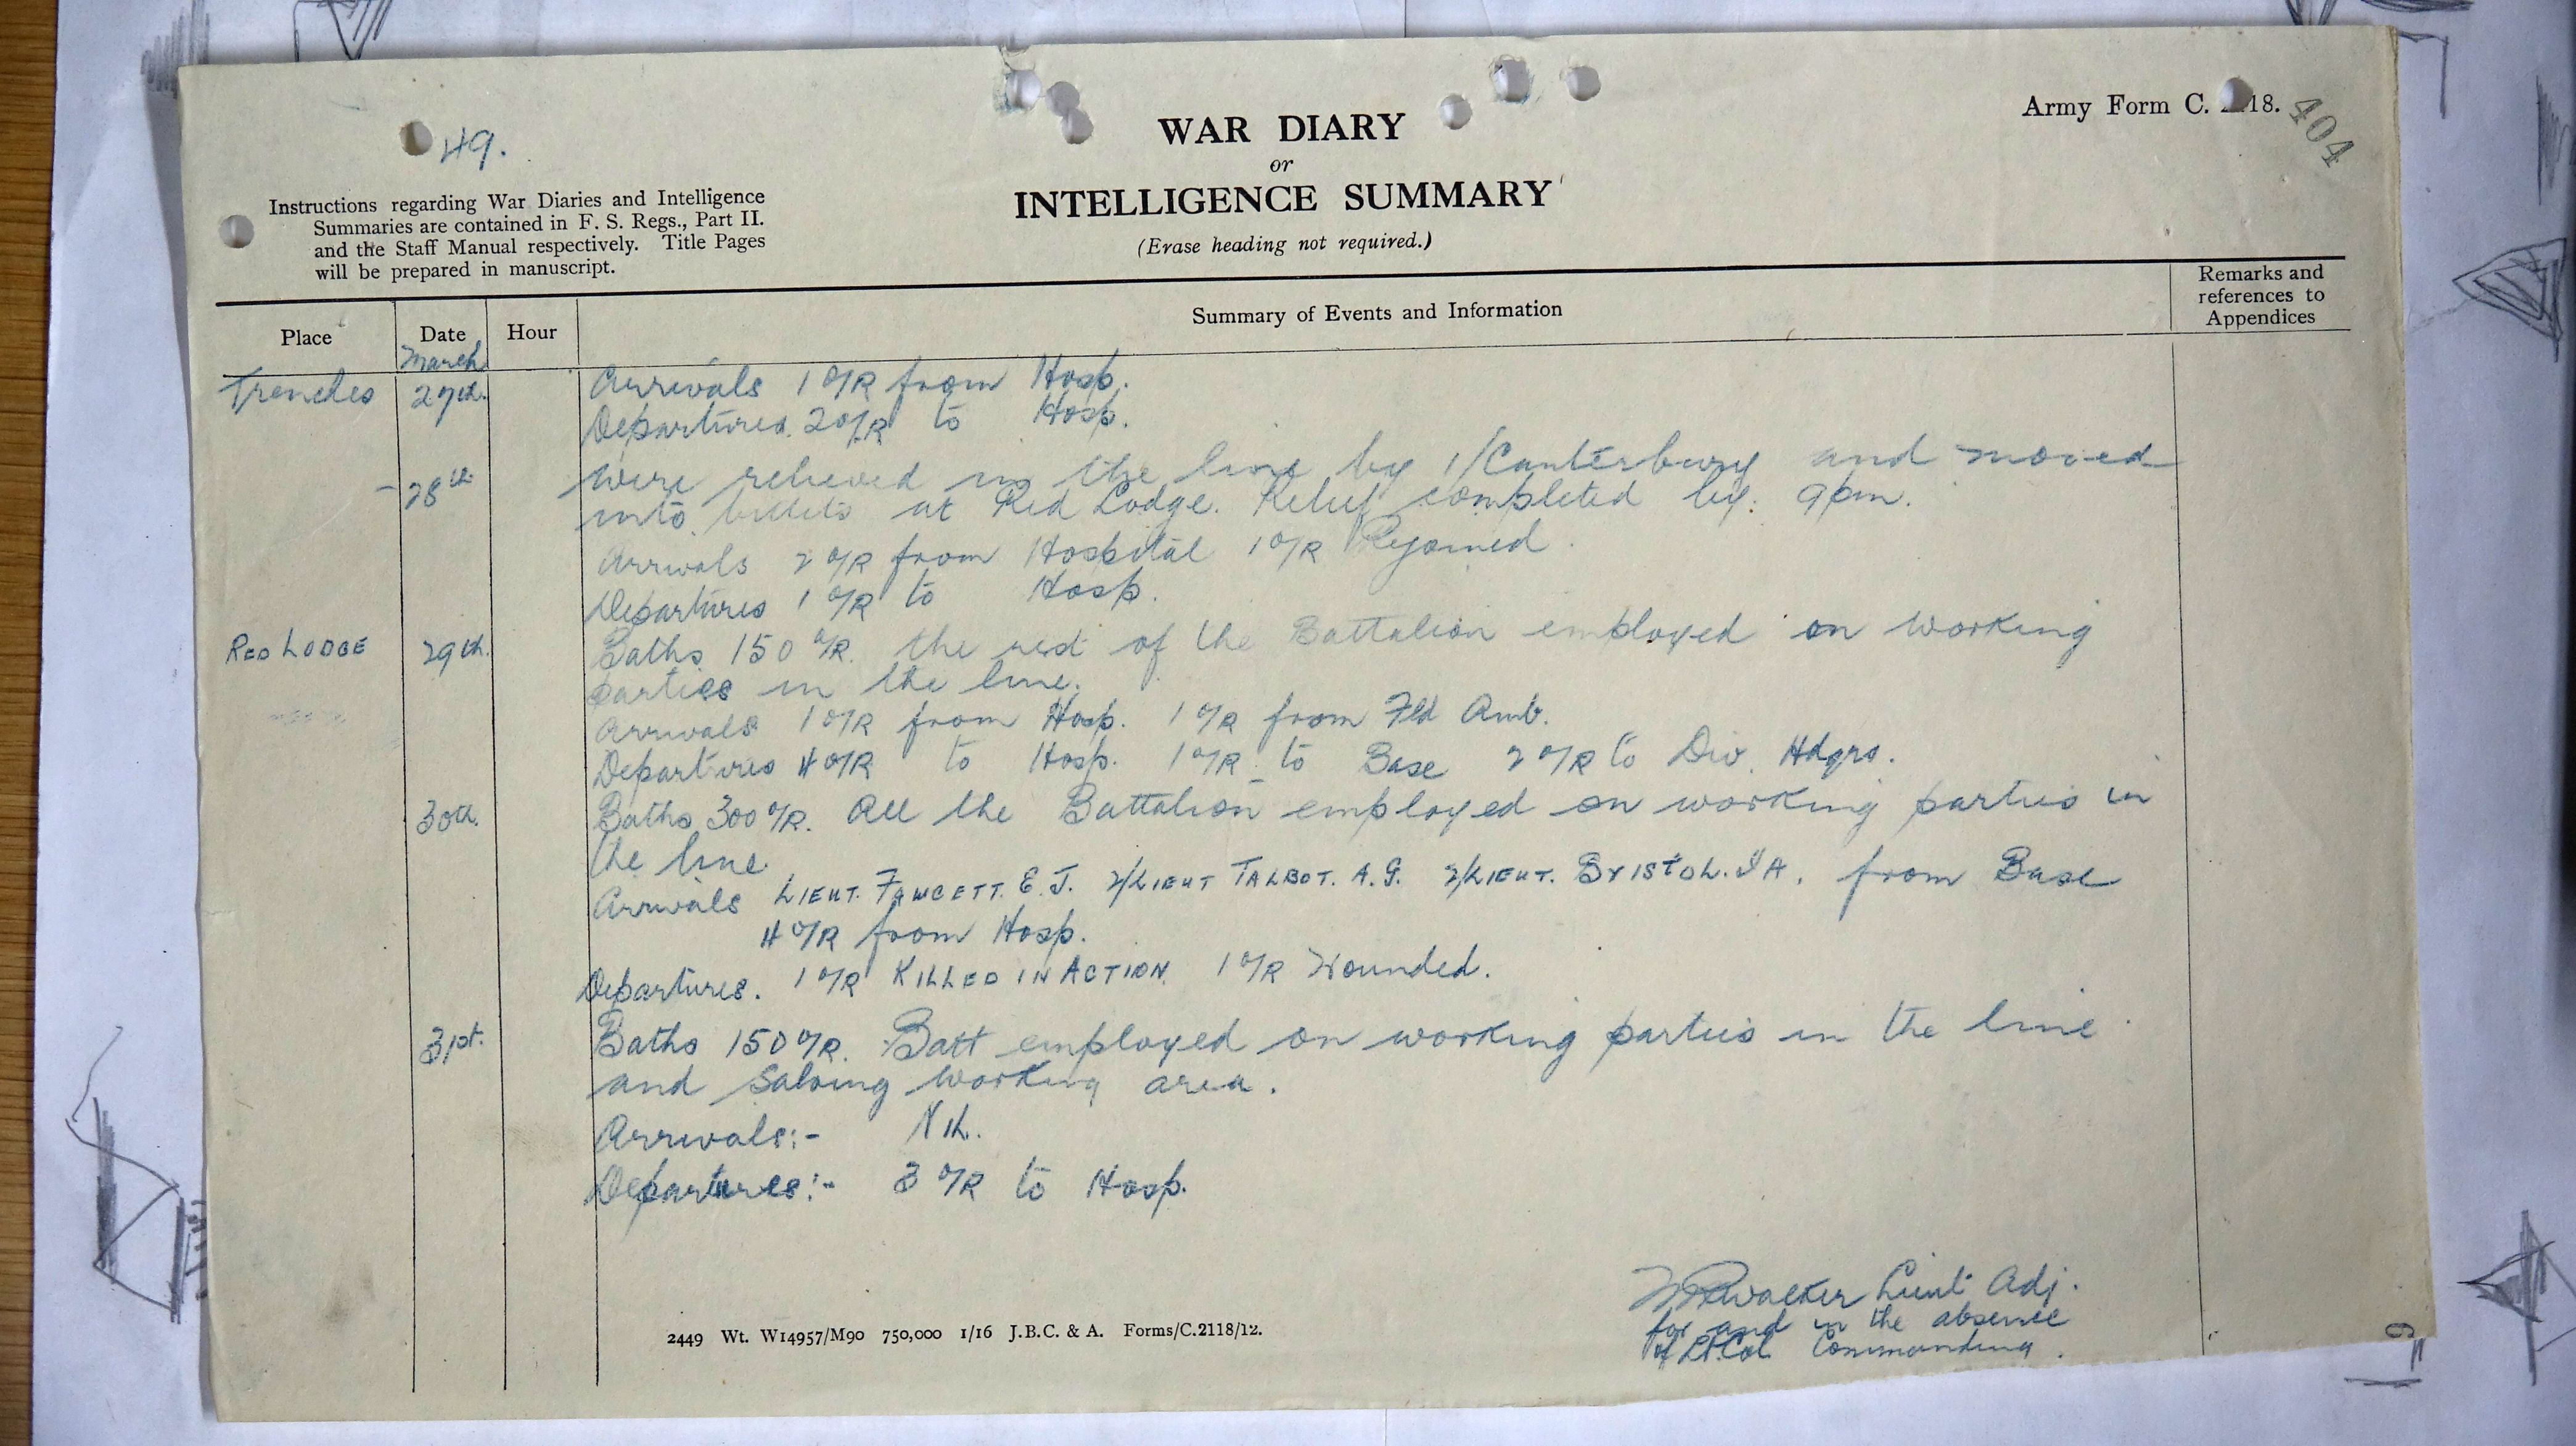 49.
Army Form C. 2118.
404
WAR DIARY
or
INTELLIGENCE SUMMARY
(Erase heading not required.)
Instructions regarding War Diaries and Intelligence
Summaries are contained in F. S. Regs., Part II.
and the Staff Manual respectively. Title Pages
will be prepared in manuscript.
Place
Date
Hour
Summary of Events and Information
Remarks and
references to
Appendices
March
Trenches 27th. Arrivals 1 O/R from Hosp.
Departures. 2 O/R to Hosp.
28th were relieved in the line by 1/Canterbury and moved
into billets at Red Lodge. Relief completed by. 9pm.
Arrivals 2 O/R from Hospital 1 O/R Rejoined.
Departures 1 O/R to Hosp.
RED LODGE 29th. Baths 150 O/R. the rest of the Battalion employed on working
parties in the line.
Arrivals 1 O/R from Hosp. 1 O/R from Fld Amb.
Departures 4 O/R to Hosp. 1 O/R to Base 2 O/R to Div. Hdqrs.
30th. Baths 300 O/R. All the Battalion employed on working parties in
the line.
Arrivals LIEUT. FAWCETT. E. J. 2/LIEUT TALBOT. A. G. 2/LIEUT. BRISTOL. A. from Base
4 O/R from Hosp.
Departures. 1 O/R KILLED IN ACTION. 1 O/R Wounded.
31st. Baths 150 O/R. Batt employed on working parties in the line
and Salving working area.
Arrivals:- NIL.
Departures:- 3 O/R to Hosp.
Walker Lieut Adj.
for and in the absence
of Lt. Col Commanding.
2449 Wt. W14957/M90 750,000 1/16 J.B.C. & A. Forms/C.2118/12.